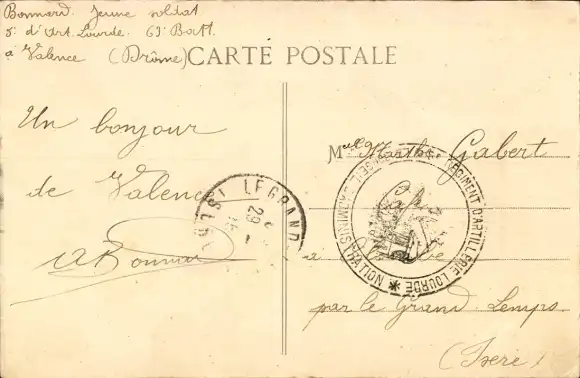 Bonnard Jeune soldat
5e d'Art. Lourde. 63e Batt.
à Valence (Drôme)
CARTE POSTALE
Un bonjour
de Valence
ABonnard
Mlle Marthe Gabert
à
par le Grand Lemps
(Isère)
LE GRAND
29
RÉGIMENT D'ARTILLERIE LOURDE
ADMINISTRATION